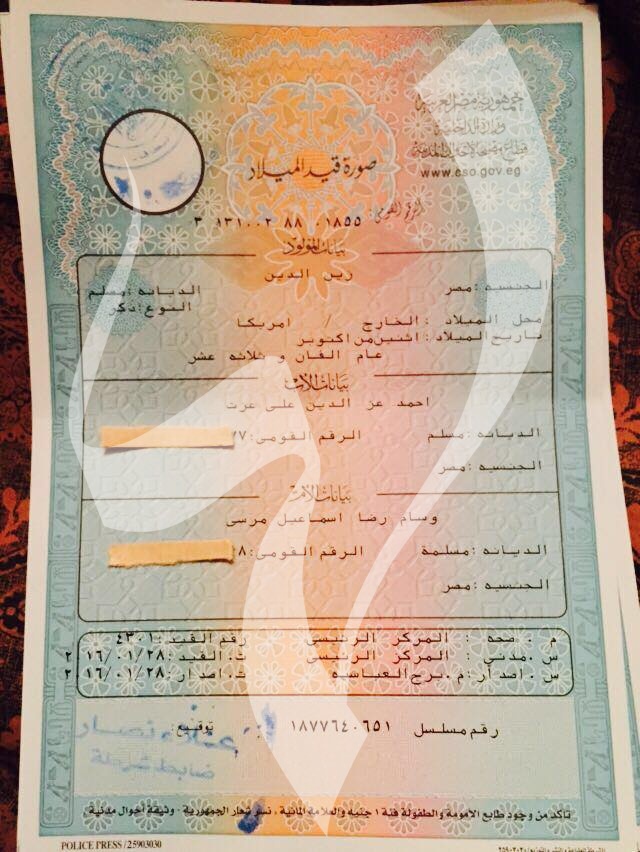 جمهورية مصر العربية
وزارة الداخلية
قطاع مصلحة الأحوال المدنية
www.cso.gov.eg
صورة قيد الميلاد
الرقم القومى: ٣ ١٣١٠٠٢ ٨٨ ٠١٨٥٥
بيانات المولود
زين الدين
الجنسيه : مصر الديانه : مسلم
النوع : ذكر
محل الميلاد : الخارج / امريكا
تاريخ الميلاد : اثنين من اكتوبر
عام الفان و ثلاثه عشر
بيانات الأب
احمد عز الدين على عزت
الديانه : مسلم الرقم القومى : ٢٧
الجنسيه : مصر
بيانات الأم
وسام رضا اسماعيل مرسى
الديانه : مسلمة الرقم القومى : ٢٨
الجنسيه : مصر
م . صحه : المركز الرئيسى رقم القيد : ٤٣٠١
س . مدنى : المركز الرئيسى ت. القيد : ٢٠١٦/٠١/٢٨
س . اصدار : م . برج العباسيه ت. اصدار : ٢٠١٦/٠١/٢٨
رقم مسلسل ١٨٧٧٦٤٠٦٥١ توقيع:
تأكد من وجود طابع الأمومة والطفولة فئة ١ جنيه والعلامة المائية ، نسر شعار الجمهورية - وثيقة أحوال مدنية
POLICE PRESS / 25903030